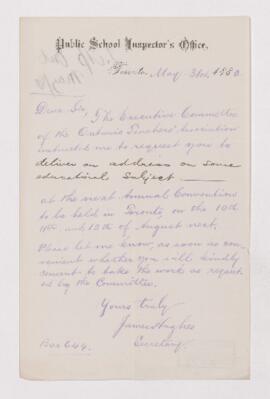 Public School Inspector's Office,
Toronto, May 31st, 1880.
Dear Sir,
The Executive Committee
of the Ontario Teachers' Association
instructed me to request you to
deliver an address on some
educational subject
at the next Annual Convention
to be held in Toronto, on the 10th
11th and 12th of August next.
Please let me know, as soon as con-
venient whether you will kindly
consent to take the work as request-
ed by the Committee.
Yours truly
James Hughes
Secretary.
Box 644.